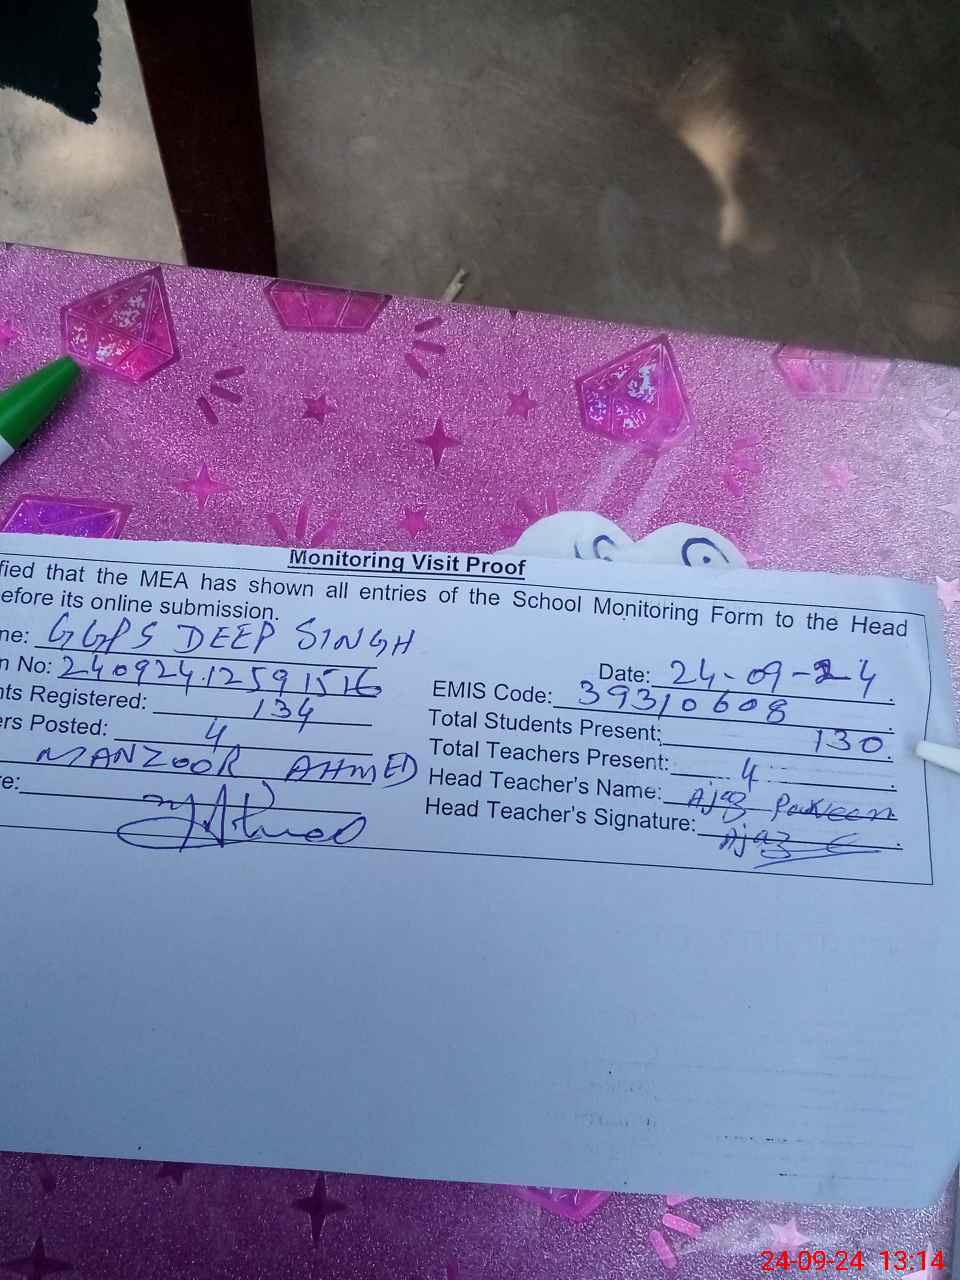 Monitoring Visit Proof
fied that the MEA has shown all entries of the School Monitoring Form to the Head
efore its online submission.
ne: GGPS DEEP SINGH
Date: 24-09-24
n No: 240924.12591516
EMIS Code: 39310608
nts Registered: 134
Total Students Present: 130
ers Posted: 4
Total Teachers Present: 4
MANZOOR AHMED
Head Teacher's Name: Ajaz Parveen
e:
Head Teacher's Signature: Ajaz
24-09-24 13:14